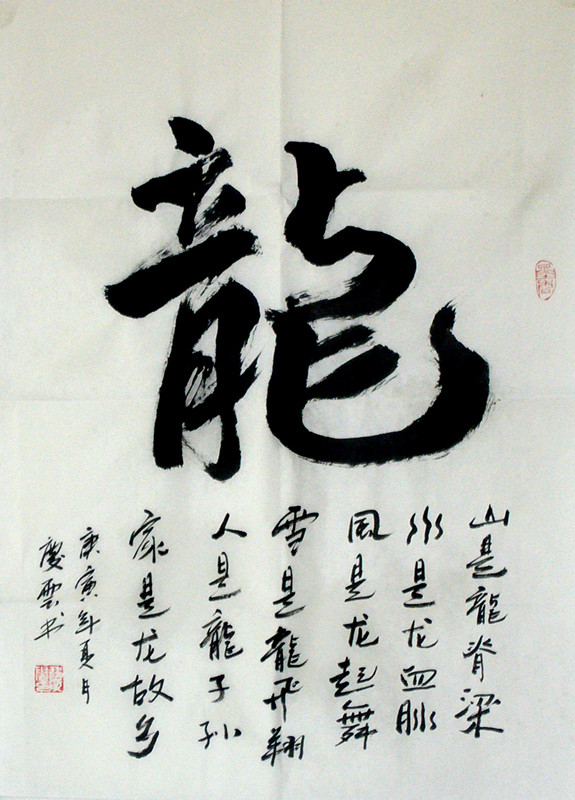 龍
山是龍脊梁
水是龙血脉
風是龙起舞
雪是龍飛翔
人是龍子孙
家是龙故乡
庚寅年夏月
慶雲书